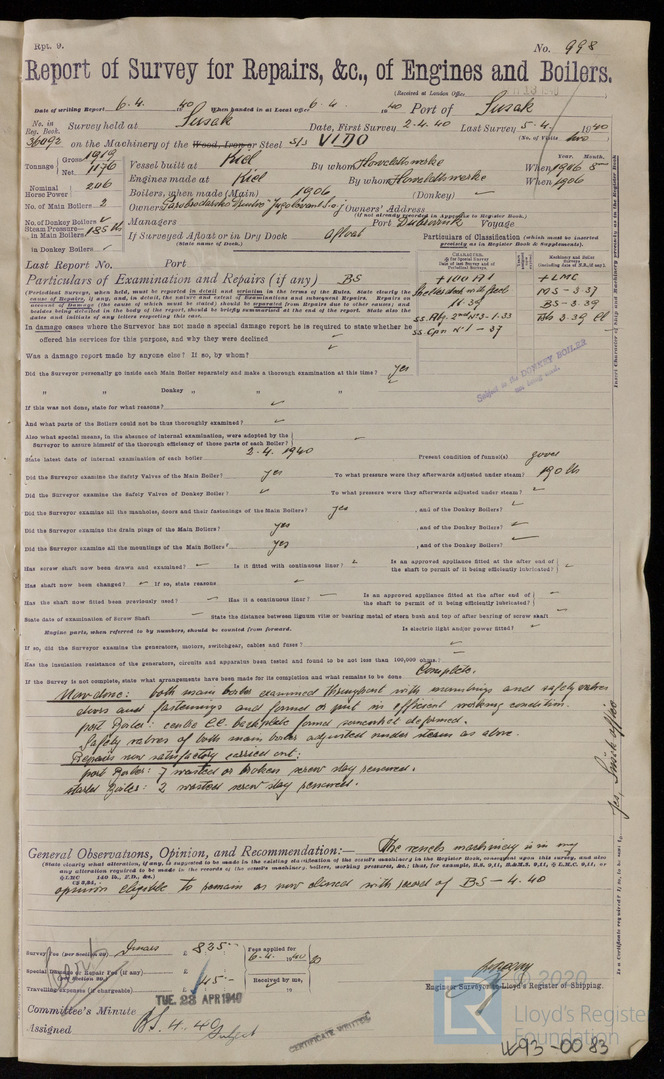 Rpt. 9.
No. 998
Report of Survey for Repairs, &c., of Engines and Boilers.
(Received at London Office
Date of writing Report 6.4. 1940 When handed in at Local Office 6.4. 1940 Port of Susak
No. in Reg. Book. Survey held at Susak Date, First Survey 2.4.40 Last Survey 5-4. 1940
(No. of Visits two)
36092 on the Machinery of the Wood, Iron or Steel s/s VIDO
Tonnage Gross 1919 Net 1176
Vessel built at Kiel By whom Howaldtswerke When 1906 5
Year. Month.
Engines made at Kiel By whom Howaldtswerke When 1906
Nominal Horse Power 206
Boilers, when made (Main) 1906 (Donkey) ✓
No. of Main Boilers 2
Owners Owners' Address
(if not already recorded in Appendix to Register Book.)
No. of Donkey Boilers ✓
Managers Port Dubrovnik Voyage
Steam Pressure in Main Boilers 185 lb
If Surveyed Afloat or in Dry Dock afloat
(State name of Dock.)
in Donkey Boilers ✓
Particulars of Classification (which must be inserted precisely as in Register Book & Supplements).
Last Report No. Port
Particulars of Examination and Repairs (if any) BS
+100 A1
+LMC
11.39
MS - 3.37
BS - 3.39
In damage cases where the Surveyor has not made a special damage report he is required to state whether he
offered his services for this purpose, and why they were declined
Was a damage report made by anyone else? If so, by whom?
Did the Surveyor personally go inside each Main Boiler separately and make a thorough examination at this time? yes
" " Donkey " " "
Subject to the DONKEY BOILER
not being used.
If this was not done, state for what reasons?
And what parts of the Boilers could not be thus thoroughly examined?
Also what special means, in the absence of internal examination, were adopted by the
Surveyor to assure himself of the thorough efficiency of those parts of each Boiler?
State latest date of internal examination of each boiler 2.4.1940 Present condition of funnel(s) good
Did the Surveyor examine the Safety Valves of the Main Boiler? yes To what pressure were they afterwards adjusted under steam? 190 lb
Did the Surveyor examine the Safety Valves of Donkey Boiler? ✓ To what pressure were they afterwards adjusted under steam? ✓
Did the Surveyor examine all the manholes, doors and their fastenings of the Main Boilers? yes , and of the Donkey Boilers? ✓
Did the Surveyor examine the drain plugs of the Main Boilers? yes , and of the Donkey Boilers? ✓
Did the Surveyor examine all the mountings of the Main Boilers? yes , and of the Donkey Boilers? ✓
Has screw shaft now been drawn and examined? Is it fitted with continuous liner? Is an approved appliance fitted at the after end of the shaft to permit of it being efficiently lubricated?
Has shaft now been changed? If so, state reasons
Has the shaft now fitted been previously used? Has it a continuous liner? Is an approved appliance fitted at the after end of the shaft to permit of it being efficiently lubricated?
State date of examination of Screw Shaft State the distance between lignum vitæ or bearing metal of stern bush and top of after bearing of screw shaft
Engine parts, when referred to by numbers, should be counted from forward. Is electric light and/or power fitted?
If so, did the Surveyor examine the generators, motors, switchgear, cables and fuses?
Has the insulation resistance of the generators, circuits and apparatus been tested and found to be not less than 100,000 ohms?
If the Survey is not complete, state what arrangements have been made for its completion and what remains to be done Complete.
Now done: both main boiler examined throughout with mountings and safety valves
doors and fastenings and formed or put in efficient working condition.
port Boiler: centre C.C. backplate found somewhat deformed.
Safety valves of both main boiler adjusted under steam as above.
Repairs now satisfactory carried out:
port Boiler: 7 wasted or broken screw stay renewed.
starbd Boiler: 2 wasted screw stay renewed.
General Observations, Opinion, and Recommendation:— The vessels machinery is in my
(State clearly what alteration, if any, is suggested to be made in the existing classification of the vessel's machinery in the Register Book, consequent upon this survey, and also
opinion eligible to remain as now classed with record of BS - 4.40
Survey Fee (per Section 29) Dinars £ 825
Fees applied for 6-4. 1940
Special Damage or Repair Fee (if any) £
Travelling expenses (if chargeable) £ 45
Received by me, 19
Engineer Surveyor to Lloyd's Register of Shipping.
TUE. 23 APR 1940
Committee's Minute
Assigned BS. 4.40
Subject
CERTIFICATE WRITTEN
© 2020
LR
Lloyd's Register
Foundation
W93-0083